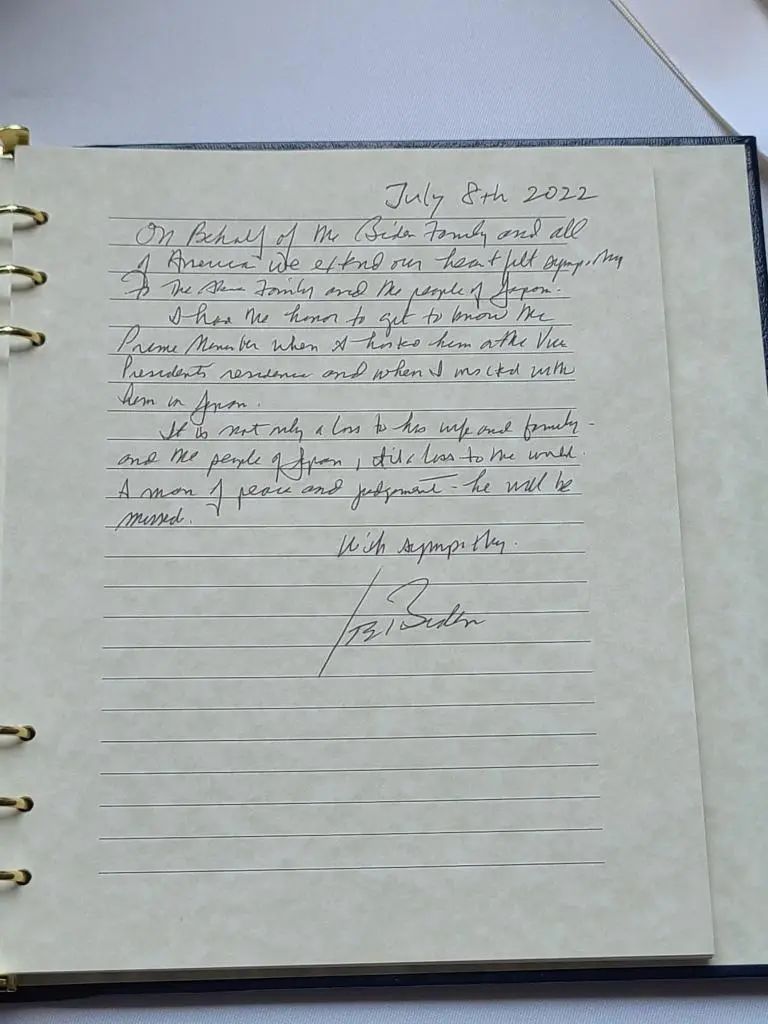 July 8th 2022
On Behalf of the Biden Family and all
of America we extend our heart felt sympathy
To the Abe Family and the people of Japan.
I had the honor to get to know the
Prime Minister when I hosted him at the Vice
Presidents residence and when I visited with
him in Japan.
It is not only a loss to his wife and family -
and the people of Japan, it's a loss to the world.
A man of peace and judgement - he will be
missed.
With sympathy.
Joe Biden